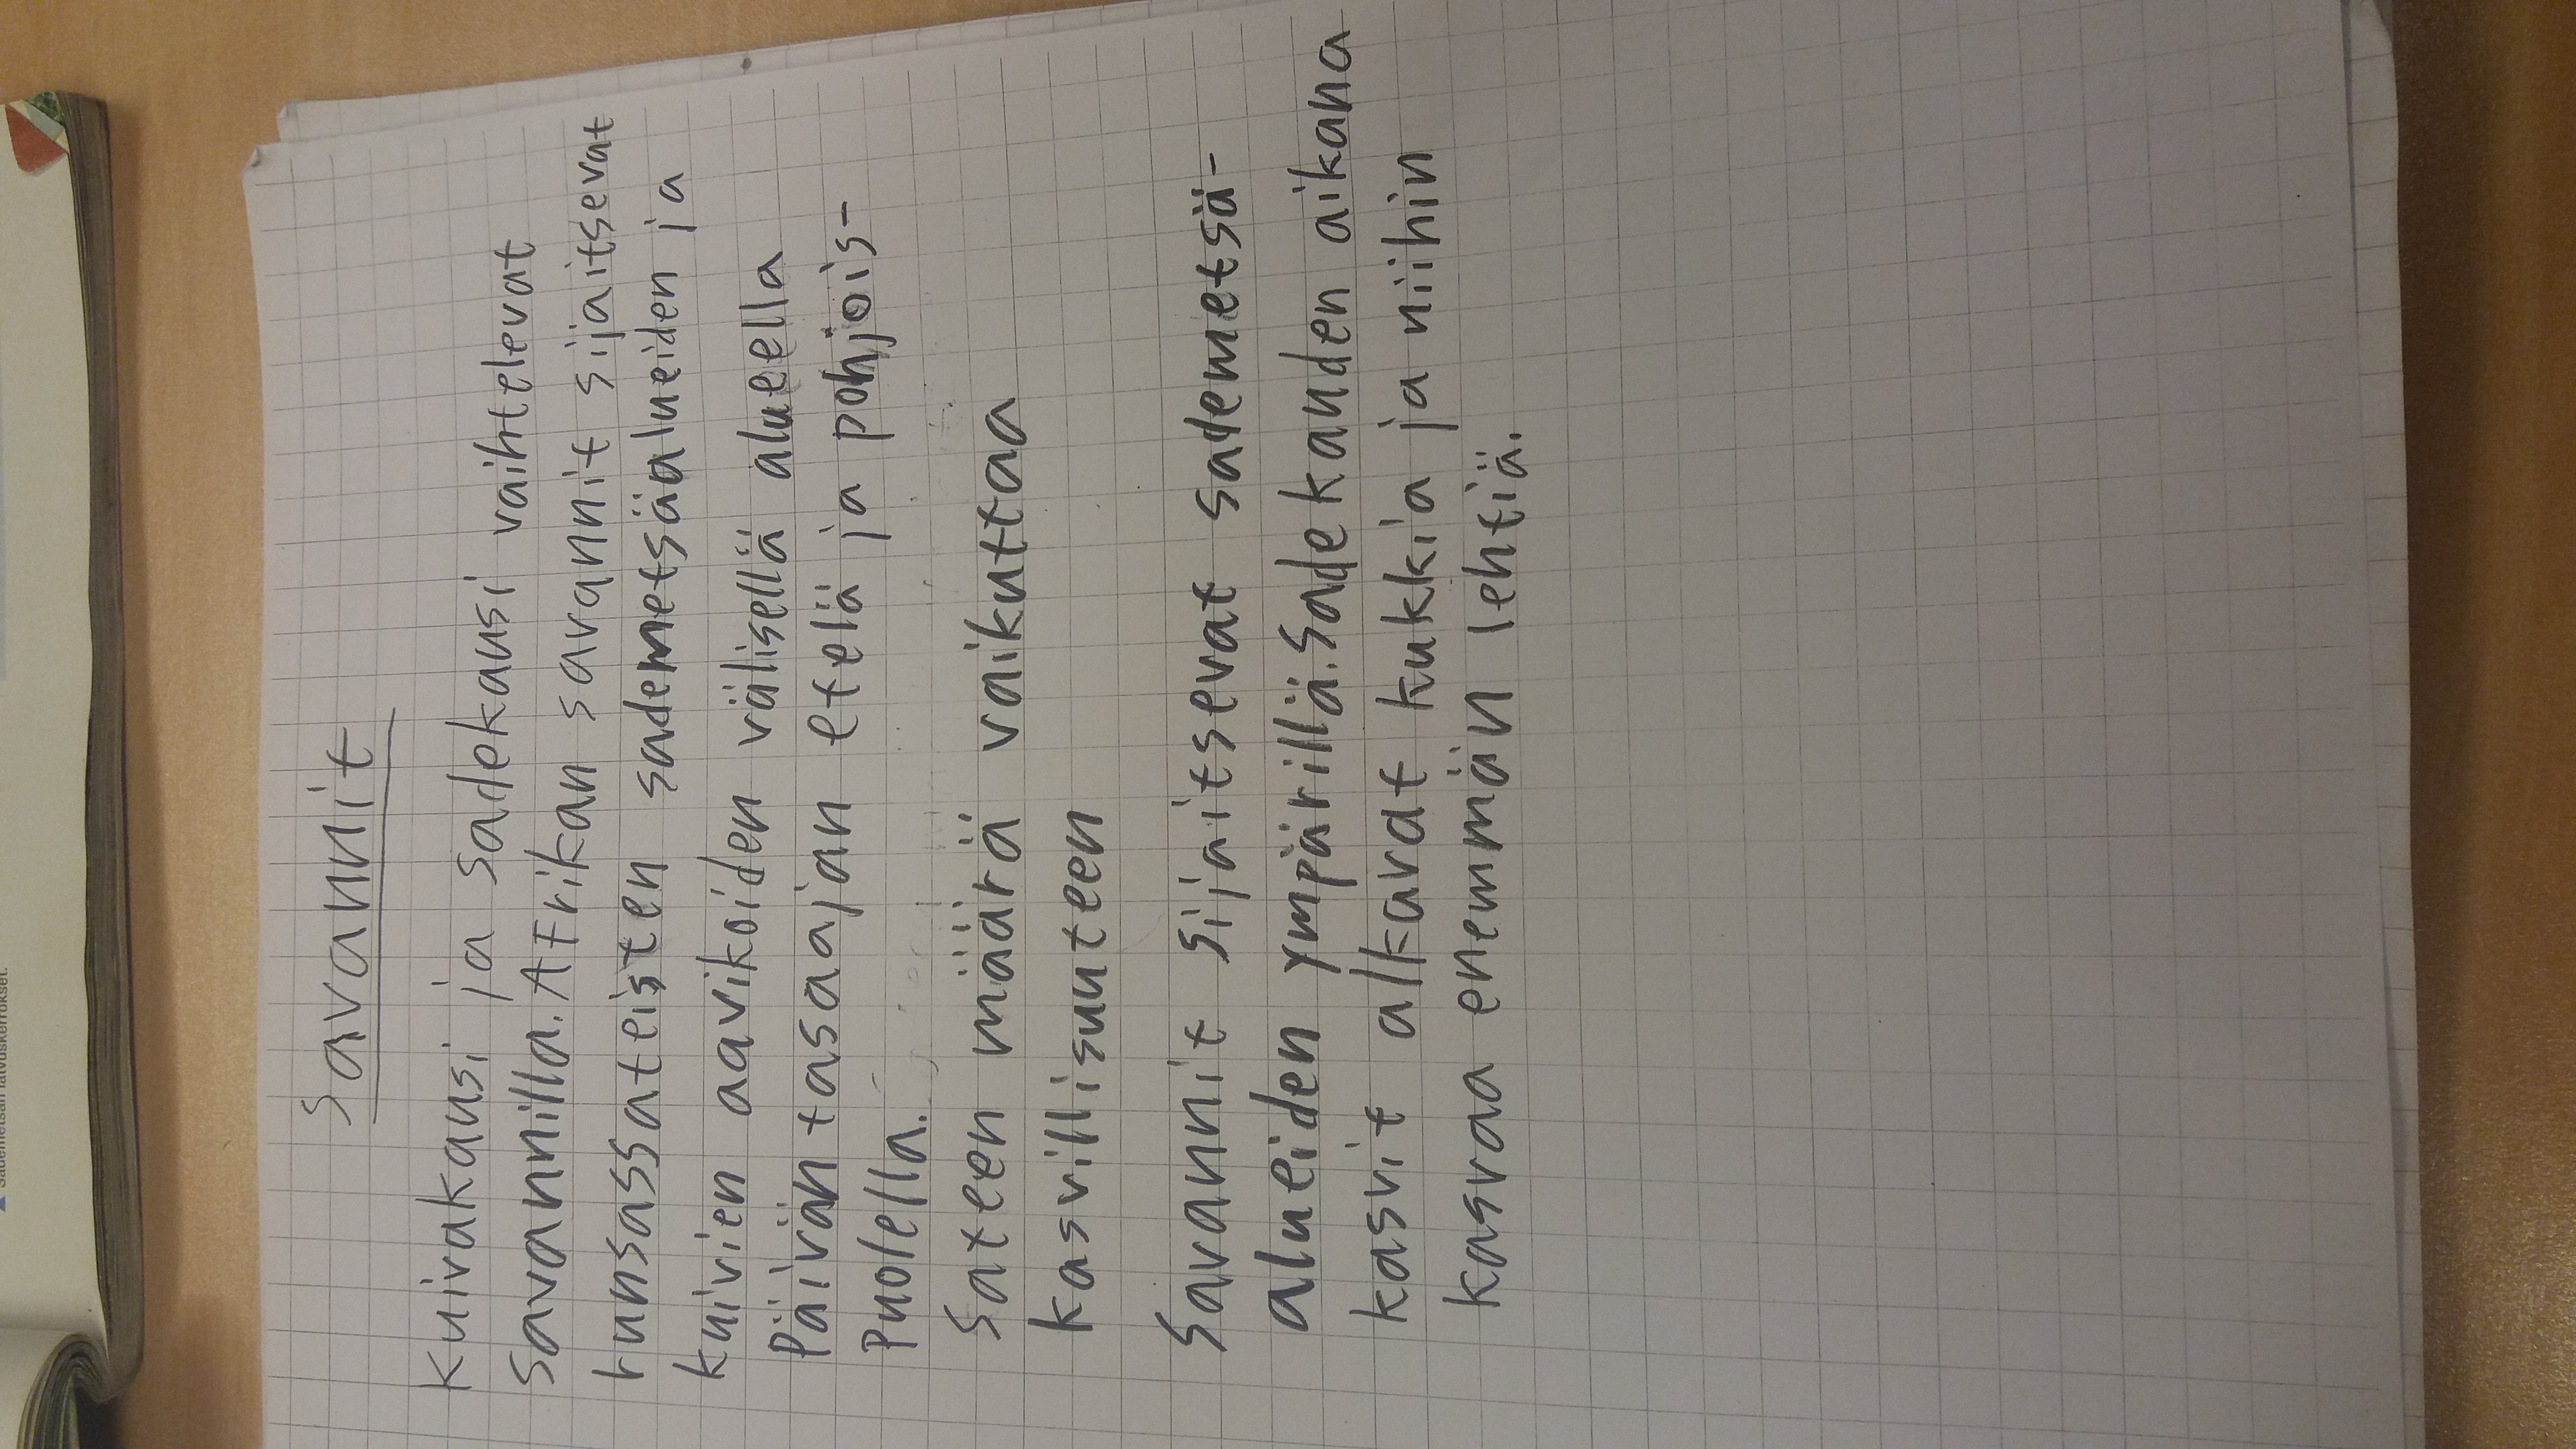 Savannit
Kuivakausi ja sadekausi vaihtelevat
savannilla. Afrikan savannit sijaitsevat
runsassateisten sademetsäalueiden ja
kuivien aavikoiden välisellä alueella
Päiväntasaajan etelä ja pohjois-
Puolella.
Sateen määrä vaikuttaa
kasvillisuuteen
Savannit sijaitsevat sademetsä-
alueiden ympärillä. Sadekauden aikana
kasvit alkavat kukkia ja niihin
kasvaa enemmän lehtiä.
Sademetsän latvuskerrokset.